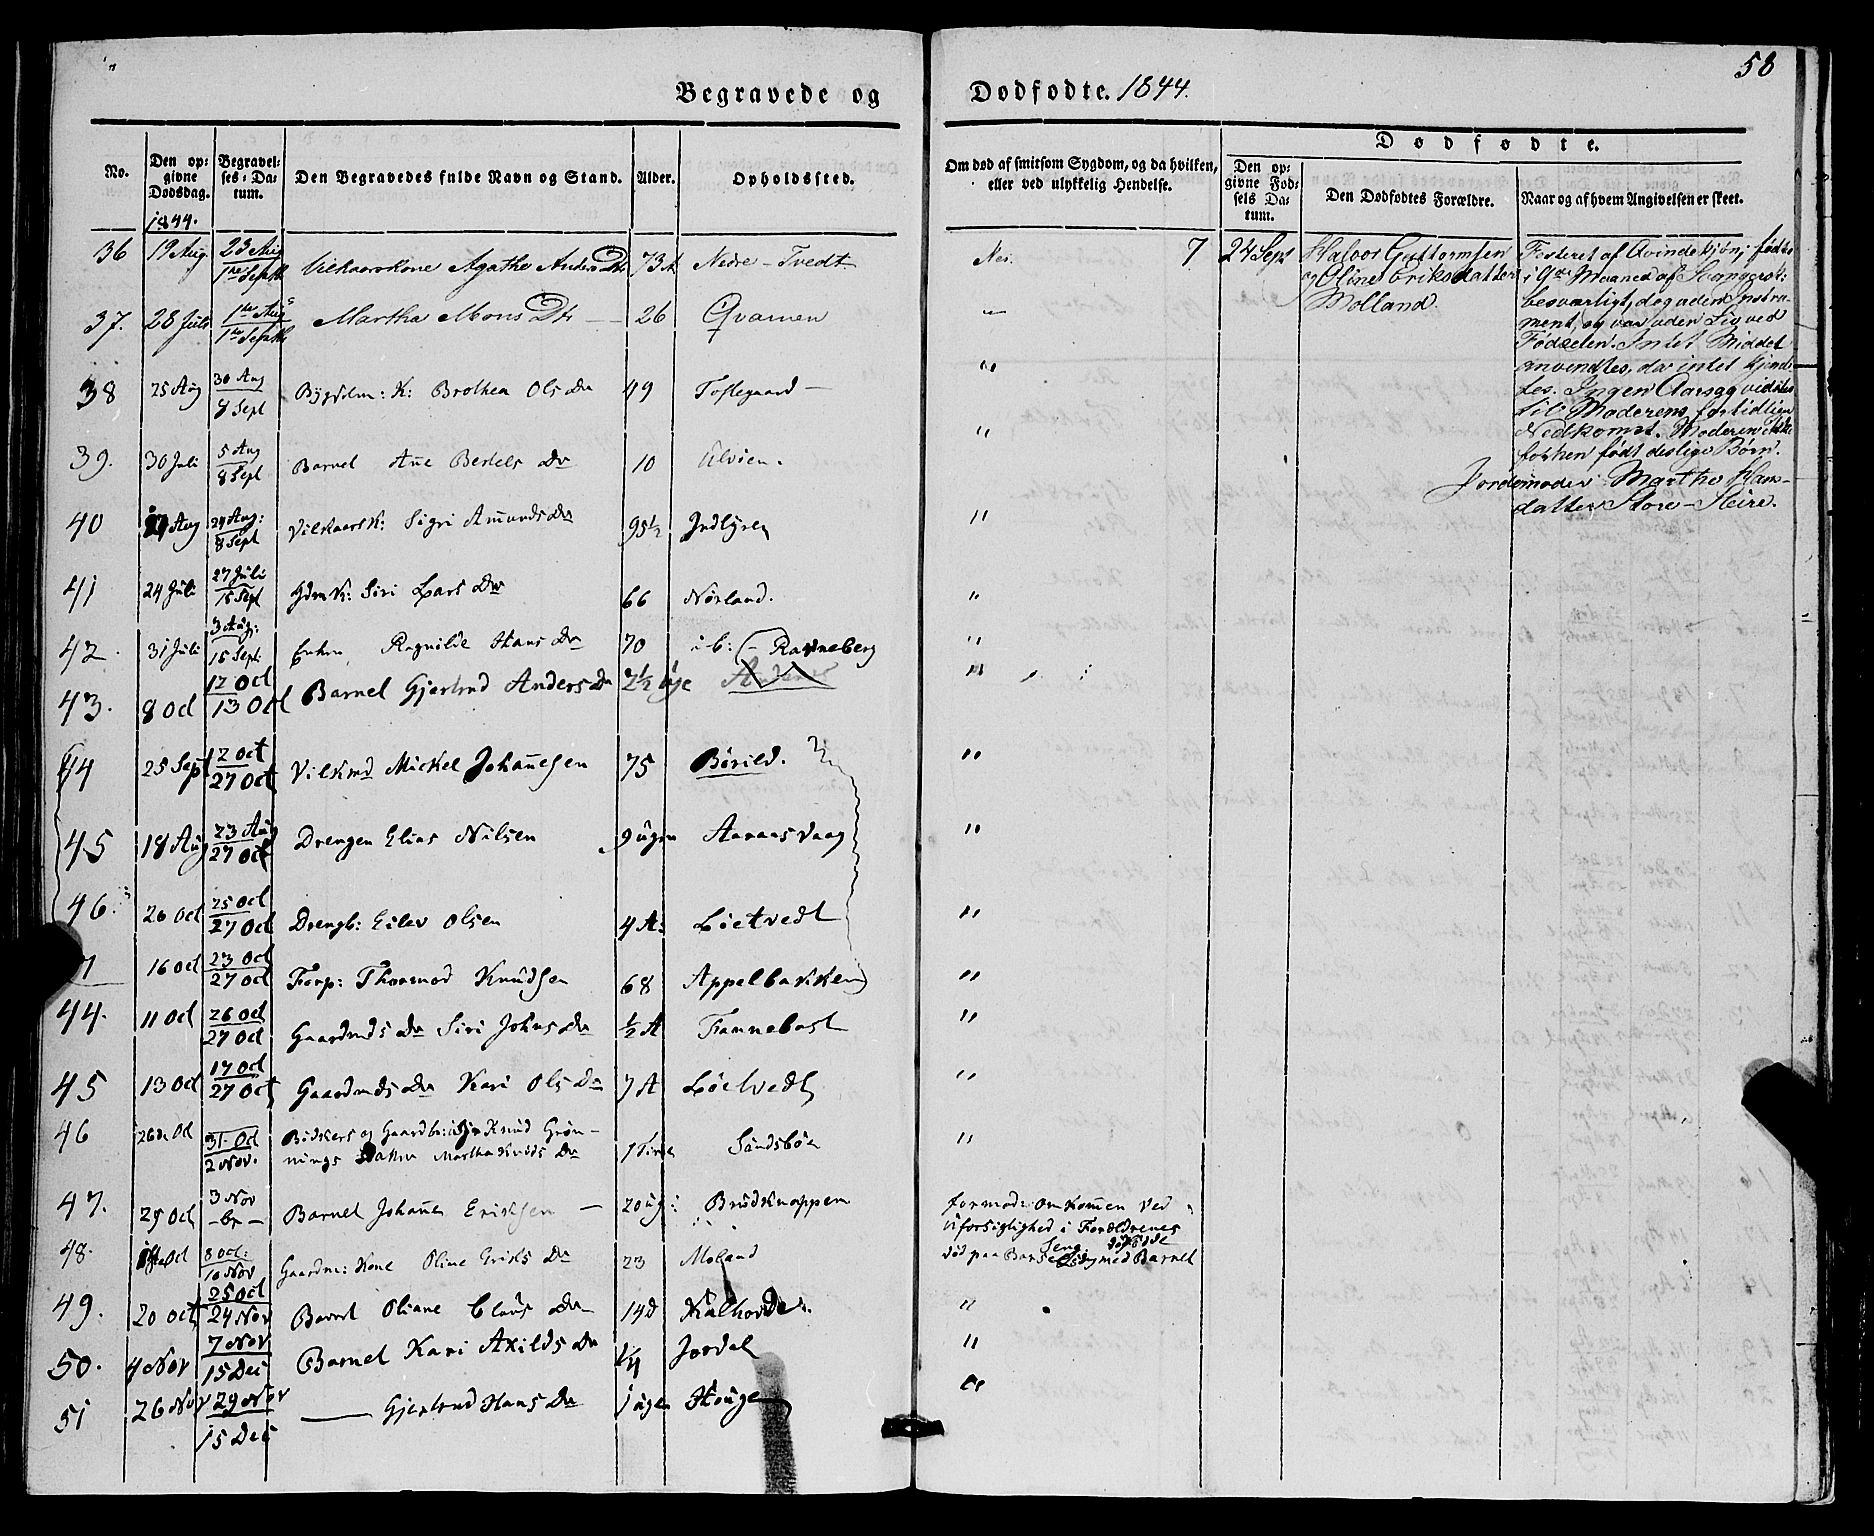 58
Begravede og Dødfødte. 1844.
No. | Den opgivne Dødsdag. | Begravelses-Datum. | Den Begravedes fulde Navn og Stand. | Alder. | Opholdssted. | Om død af smitsom Sygdom, og da hvilken, eller ved ulykkelig Hendelse.
Dødfødte.
Den opgivne Fødsels Datum. | Den Dødfødtes Forældre. | Naar og af hvem Angivelsen er skeet.
1844.
36 | 19 Aug | 23 Aug / 1ste Septb | Vilkaarskone Agathe Anders Dtr | 73 A | Nedre-Tvedt | Nei.
37. | 28 Juli | 1ste Aug / 1ste Septb | Martha Mons Dtr | 26 | Qvamen | "
38 | 25 Aug | 30 Aug / 8 Sept | Bygdm: K: Brothea Ols Dr | 49 | Toftegaard | "
39. | 30 Juli | 5 Aug / 8 Sept | Barnet Ane Bertels Dr | 10 | Ulvien. | "
40 | Aug | 24 Aug: / 8 Sept | Vilkaarsk: Sigri Amunds Dr | 95½ | Indlyren | "
41 | 24 Juli | 27 Juli / 15 Sept | Gdmk: Siri Lars Dr | 66 | Nørland. | "
42. | 31 Juli | 3 Aug: / 15 Sept: | Enken Ragnilde Hans Dr | 70 | i b: - Ravneberg | "
43. | 8 Oct | 12 Oct / 13 Oct | Barnet Gjertrud Anders Dr | 2½ Uge | "
44 | 25 Sept | 2 Oct / 27 Oct | Vilkmd Mickel Johannesen | 75 | Börild. | "
45 | 18 Aug | 23 Aug / 27 Oct | Drengen Elias Nilsen | 9 ugen | Aaraasvaag | "
46. | 20 Oct | 25 Oct / 27 Oct | Drengb: Eilev Olsen | 4 A: | Löetvedt | "
7 | 16 Oct | 23 Oct / 27 Oct | Forp: Thormod Knudsen | 68 | Appelbakken | "
44. | 11 Oct | 26 Oct / 27 Oct | Gaardmds Dr Siri Johns Dr | ½ A | Tannebast | "
45 | 13 Oct | 17 Oct / 27 Oct | Gaardmds Dr Kari Ols Dr | 7 A | Löetvedt | "
46 | 26de Oct | 31 Oct / 2 Nov. | Bidskers og Gaardbr: Knud Grön-
nings Datter Martha Knuds Dr | 1 Time | Sandsböe | "
47. | 29 Oct | 3 Nov | Barnet Johannes Eriksen | 20 ug: | Brudknappen | formod: Omkommen ved
Uforsigtighed i Forældrenes
Seng
48. | Oct | 8 Oct: / 10 Nov | Gaardm: Kone Oline Eriks Dr | 23 | Moland | död paa Barselseng med Barnet
49. | 20 Oct | 25 Oct / 24 Nov | Barnet Oliane Claus Dr | 14 d | Kalhovde. | "
50. | 4 Nov | 7 Nov / 15 Dec | Barnet Kari Axilds Dr | ¼ | Jordal | "
51 | 26 Nov | 29 Nov / 15 Dec | — Gjertrud Hans Dr | 1 ugen | Houge | "
7 | 24 Sept | Halvor Guttormsen
og Oline Eriksdatter
Molland.
Fosteret af Qvindekjøn; født
i 9de Maaned af Svangerst:
besværligt, dog uden Instru-
ment, og var uden Liv ved
Fødselen. Intet Middel
anvendtes, da intet kjend-
tes. Ingen Aarsag vidstes
til Moderens fortidlige
Nedkomst. Moderen ikke
før hen født deslige Børn.
Jordemoder Marthe Han-
datter Store-Heire.